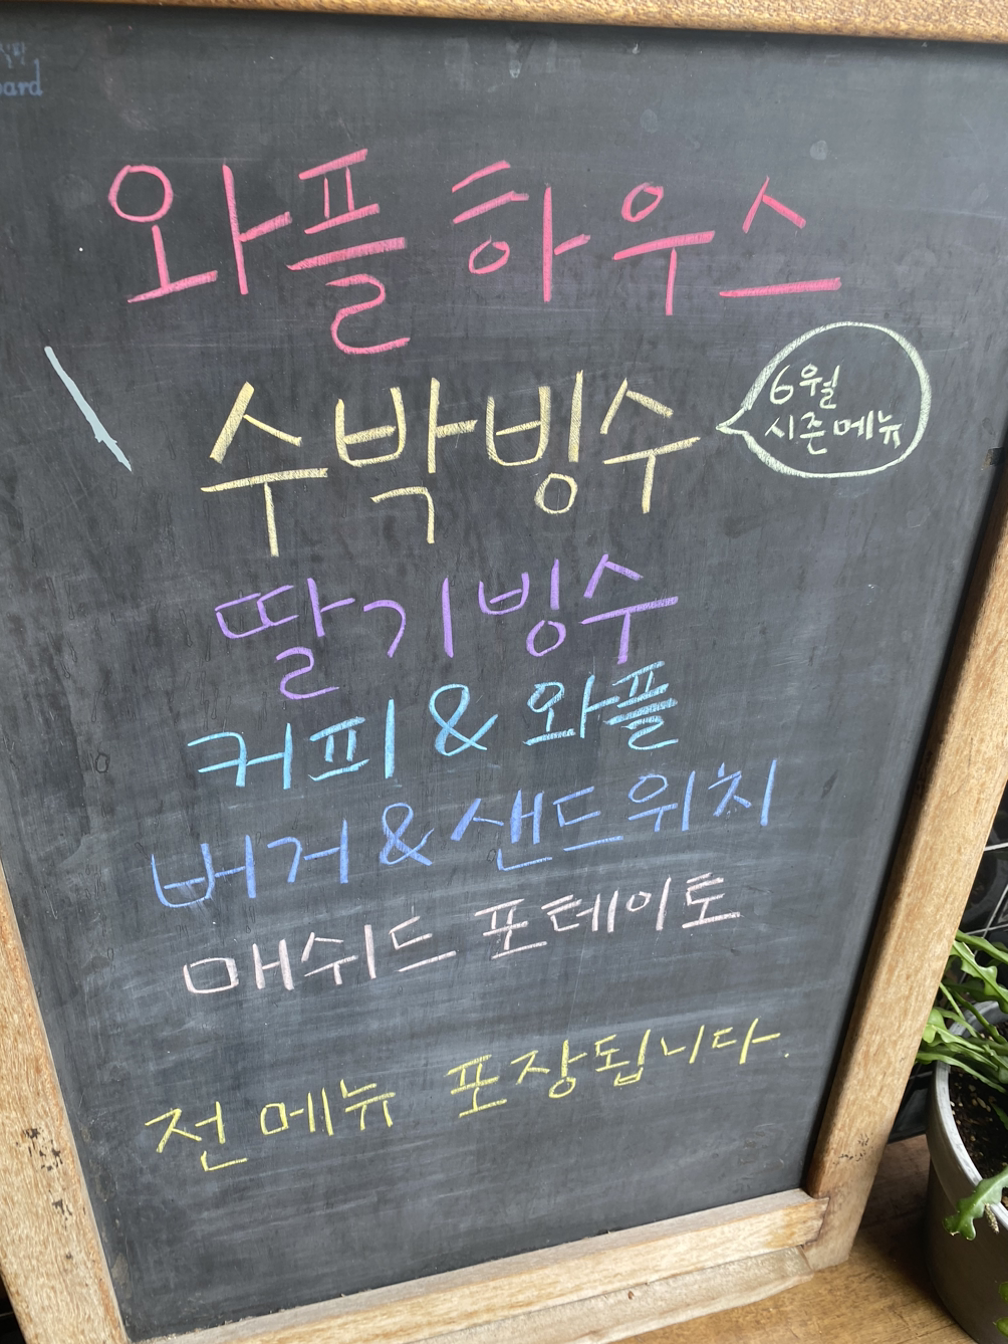 와플 하우스
수박빙수
6월
시즌메뉴
딸기빙수
커피 & 와플
버거 & 샌드위치
매쉬드 포테이토
전 메뉴 포장됩니다.